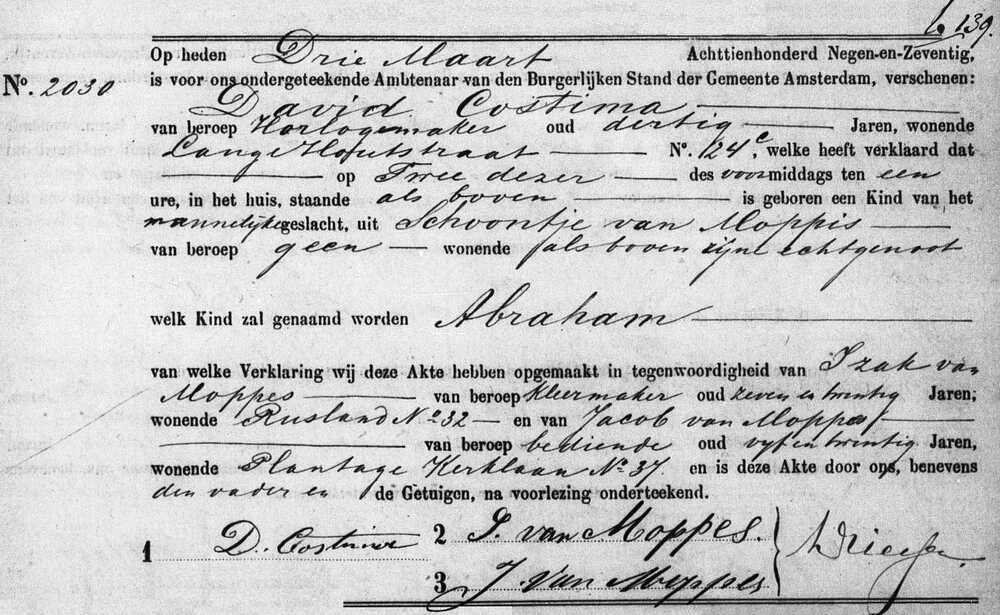 b 139.
Op heden Drie Maart Achttienhonderd Negen-en-Zeventig,
No. 2030 is voor ons ondergeteekende Ambtenaar van den Burgerlijken Stand der Gemeente Amsterdam, verschenen:
David Costima
van beroep Horlogemaker oud dertig Jaren, wonende
Lange Houtstraat No. 124 c, welke heeft verklaard dat
op Twee dezer des voormiddags ten een
ure, in het huis, staande als boven is geboren een Kind van het
mannelijke geslacht, uit Schoontje van Moppis
van beroep geen wonende als boven zijne echtgenoot
welk Kind zal genaamd worden Abraham
van welke Verklaring wij deze Akte hebben opgemaakt in tegenwoordigheid van Izak van
Moppes van beroep Kleermaker oud zeven en twintig Jaren;
wonende Rusland No 32 en van Jacob van Moppes
van beroep bediende oud vyf en twintig Jaren,
wonende Plantage Kerklaan No 37. en is deze Akte door ons, benevens
den vader en de Getuigen, na voorlezing onderteekend.
1 D. Costima 2 I. van Moppes.
3 J. van Moppes